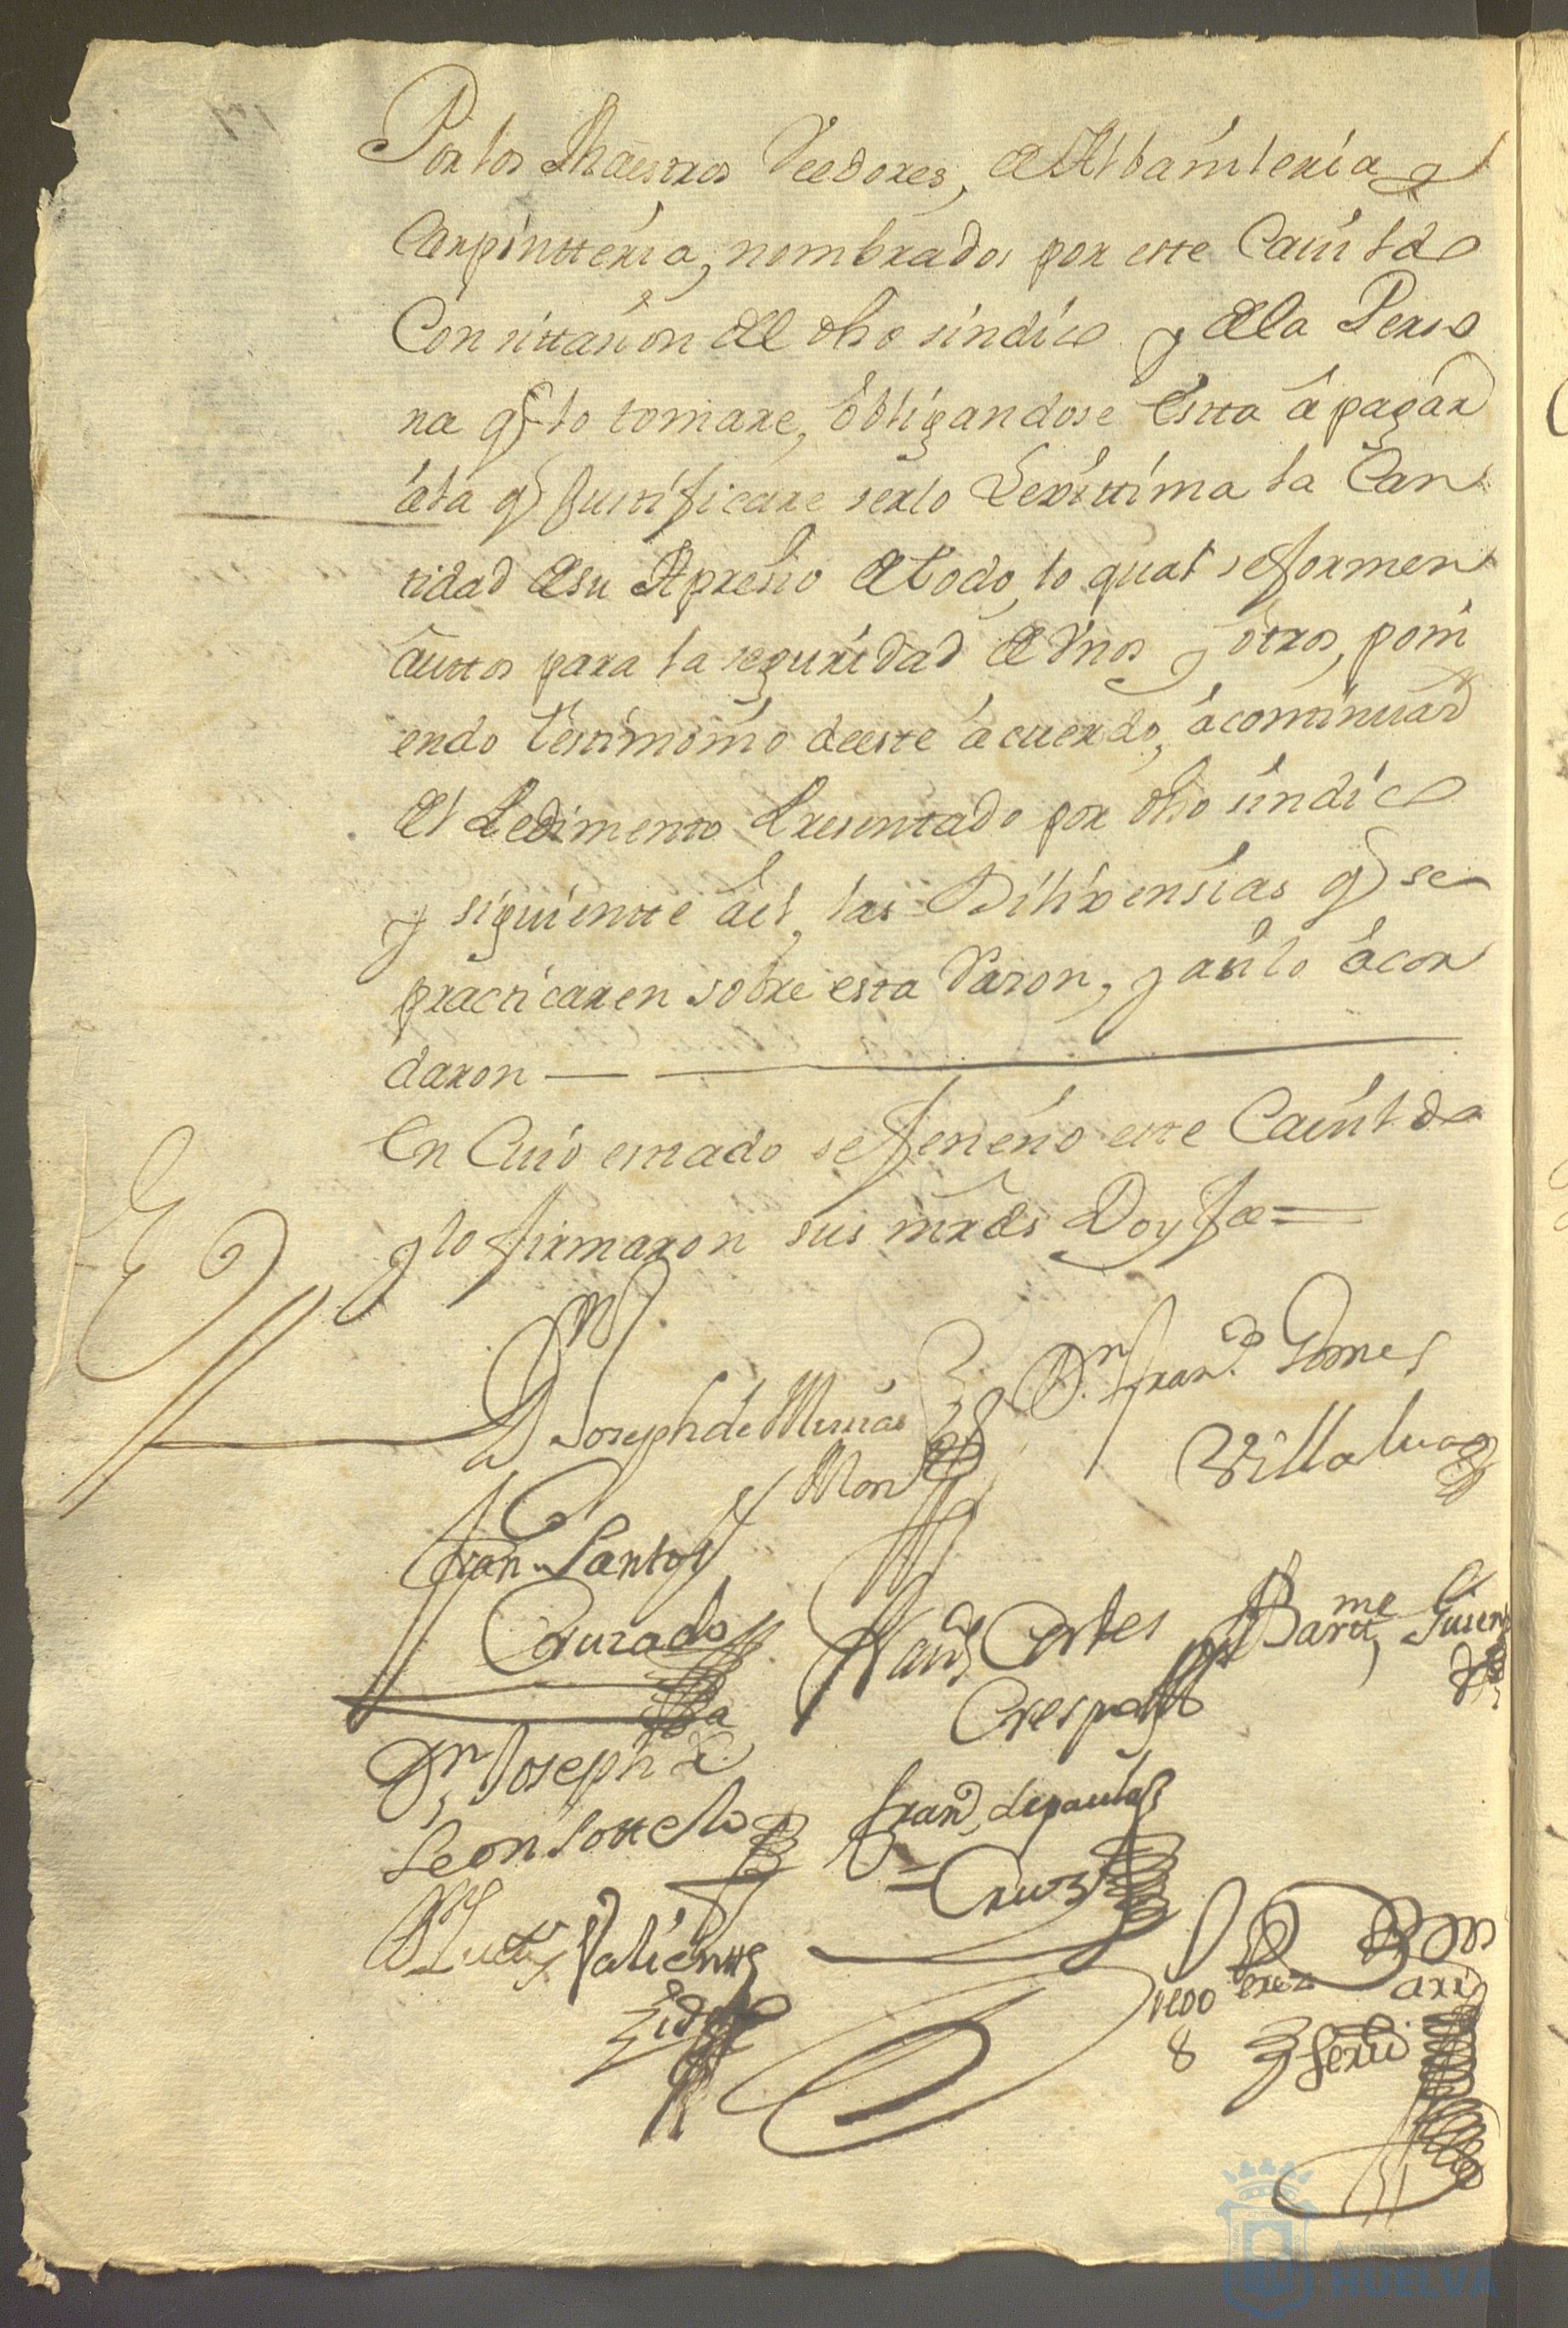 Por los Maestros Veedores, de Albañileria y
Carpintteria, nombrados por este Cavildo
Con sittasion del dho sindico y de la Perso
na q̃ lo tomare, obligandose Estta â pagar
â la q̃ Justificare serlo Lexittima la Can
tidad de su Apresio de todo lo qual se formen
auttos para la seguridad de Vnos y otros, poni
endo testimonio de este acuerdo, â continuad
del Pedimento Presentado por dho sindico
y siguientte âel, las Dilixensias q̃ se
practicaren sobre esta Rason, y asi lo acor
daron
En Cuio estado se feneñio este Cavildo
y lo firmaron sus mrds Doy fee=
Dn Joseph de
Mon
Dn Franco Gomes
Villalua
Fran Santos
Franco Cortes
Crespo
Barme
Dn Joseph de
Leon Sottelo
Franco de paula
Cruz
Valientte